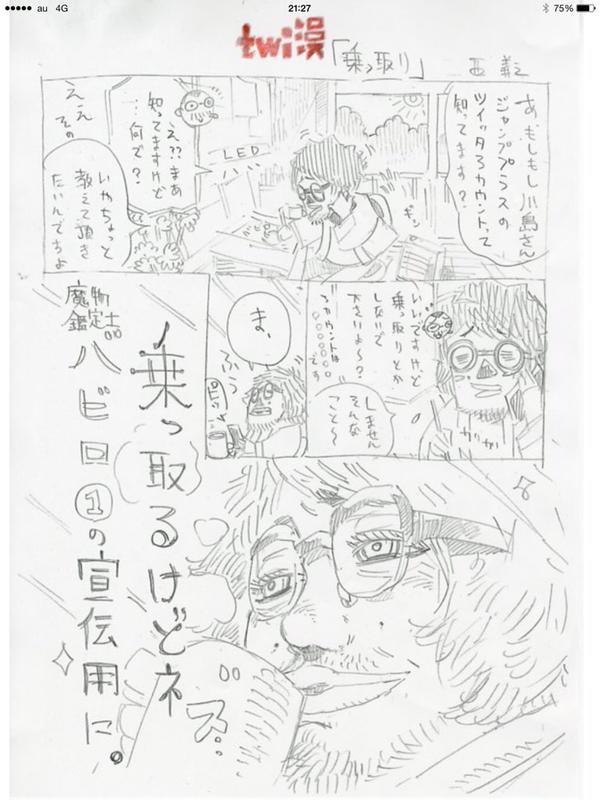 ●●●●● au 4G
21:27
75%
twi漫
「乗っ取り」
西 義之
あ、もしもし川島さん
ジャンププラスの
ツイッタアカウントって
知ってます?
え?? まあ
知ってますけど
…何で?
LED
ええ
その
いやちょっと
教えて頂き
たいんですよ
いいですけど
乗っ取りとか
しないで
下さいよ〜?
アカウントは
○○○○○○です
しません
そんな
こと〜
カリカリ
ま、
ふぅ
ピッ
乗っ取るけどネ
魔物
鑑定士
バビロ①の宣伝用に。
ズ…